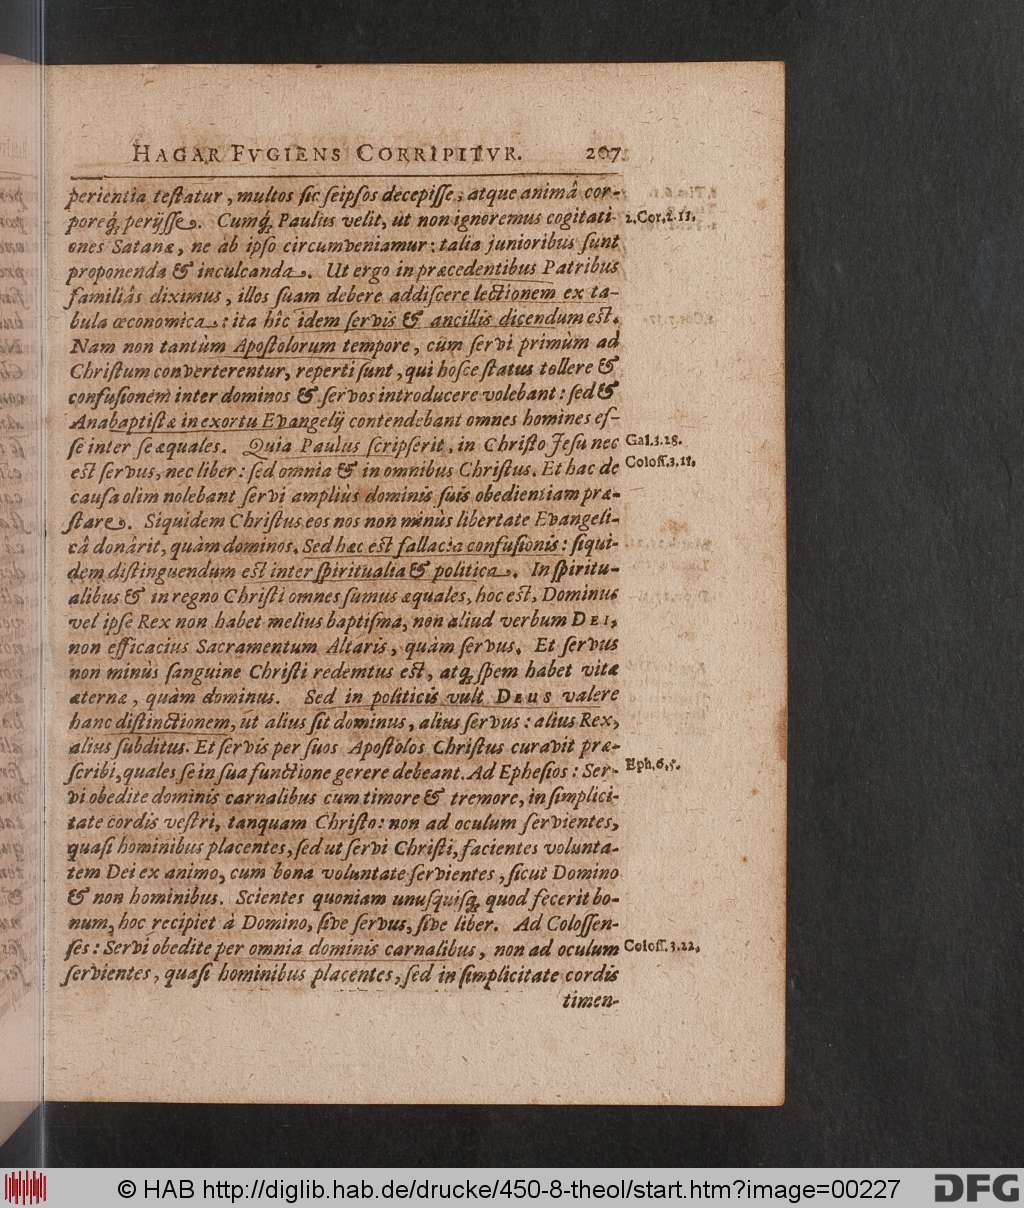 HAGAR FVGIENS CORRIPITVR. 207
perientia testatur, multos sic seipsos decepisse, atque animâ cor-
poreq́ perijsse. Cumq́ Paulus velit, ut non ignoremus cogitati- 2.Cor.2.11.
ones Satanæ, ne ab ipso circumveniamur: talia junioribus sunt
proponenda & inculcanda. Ut ergo in præcedentibus Patribus
familiâs diximus, illos suam debere addiscere lectionem ex ta-
bula œconomica: ita hîc idem servis & ancillis dicendum est.
Nam non tantùm Apostolorum tempore, cùm servi primùm ad
Christum converterentur, reperti sunt, qui hosce status tollere &
confusionem inter dominos & servos introducere volebant: sed &
Anabaptistæ in exortu Evangelij contendebant omnes homines es-
se inter se æquales. Quia Paulus scripserit, in Christo Jesu nec Gal.3.28.
est servus, nec liber: sed omnia & in omnibus Christus. Et hac de Coloss.3.11.
causa olim nolebant servi ampliùs dominis suis obedientiam præ-
stare. Siquidem Christus eos nos non minùs libertate Evangeli-
câ donârit, quàm dominos. Sed hæc est fallacia confusionis: siqui-
dem distinguendum est inter spiritualia & politica. In spiritu-
alibus & in regno Christi omnes sumus æquales, hoc est, Dominus
vel ipse Rex non habet melius baptisma, non aliud verbum DEI,
non efficacius Sacramentum Altaris, quàm servus. Et servus
non minùs sanguine Christi redemtus est, atq́ spem habet vitæ
æternæ, quàm dominus. Sed in politicis vult DEUS valere
hanc distinctionem, ut alius sit dominus, alius servus: alius Rex,
alius subditus. Et servis per suos Apostolos Christus curavit præ-
scribi, quales se in sua functione gerere debeant. Ad Ephesios: Ser- Eph.6,5.
vi obedite dominis carnalibus cum timore & tremore, in simplici-
tate cordis vestri, tanquam Christo: non ad oculum servientes,
quasi hominibus placentes, sed ut servi Christi, facientes volunta-
tem Dei ex animo, cum bona voluntate servientes, sicut Domino
& non hominibus. Scientes quoniam unusquisq́ quod fecerit bo-
num, hoc recipiet à Domino, sive servus, sive liber. Ad Colossen-
ses: Servi obedite per omnia dominis carnalibus, non ad oculum Coloss.3.22.
servientes, quasi hominibus placentes, sed in simplicitate cordis
timen-
© HAB http://diglib.hab.de/drucke/450-8-theol/start.htm?image=00227
DFG